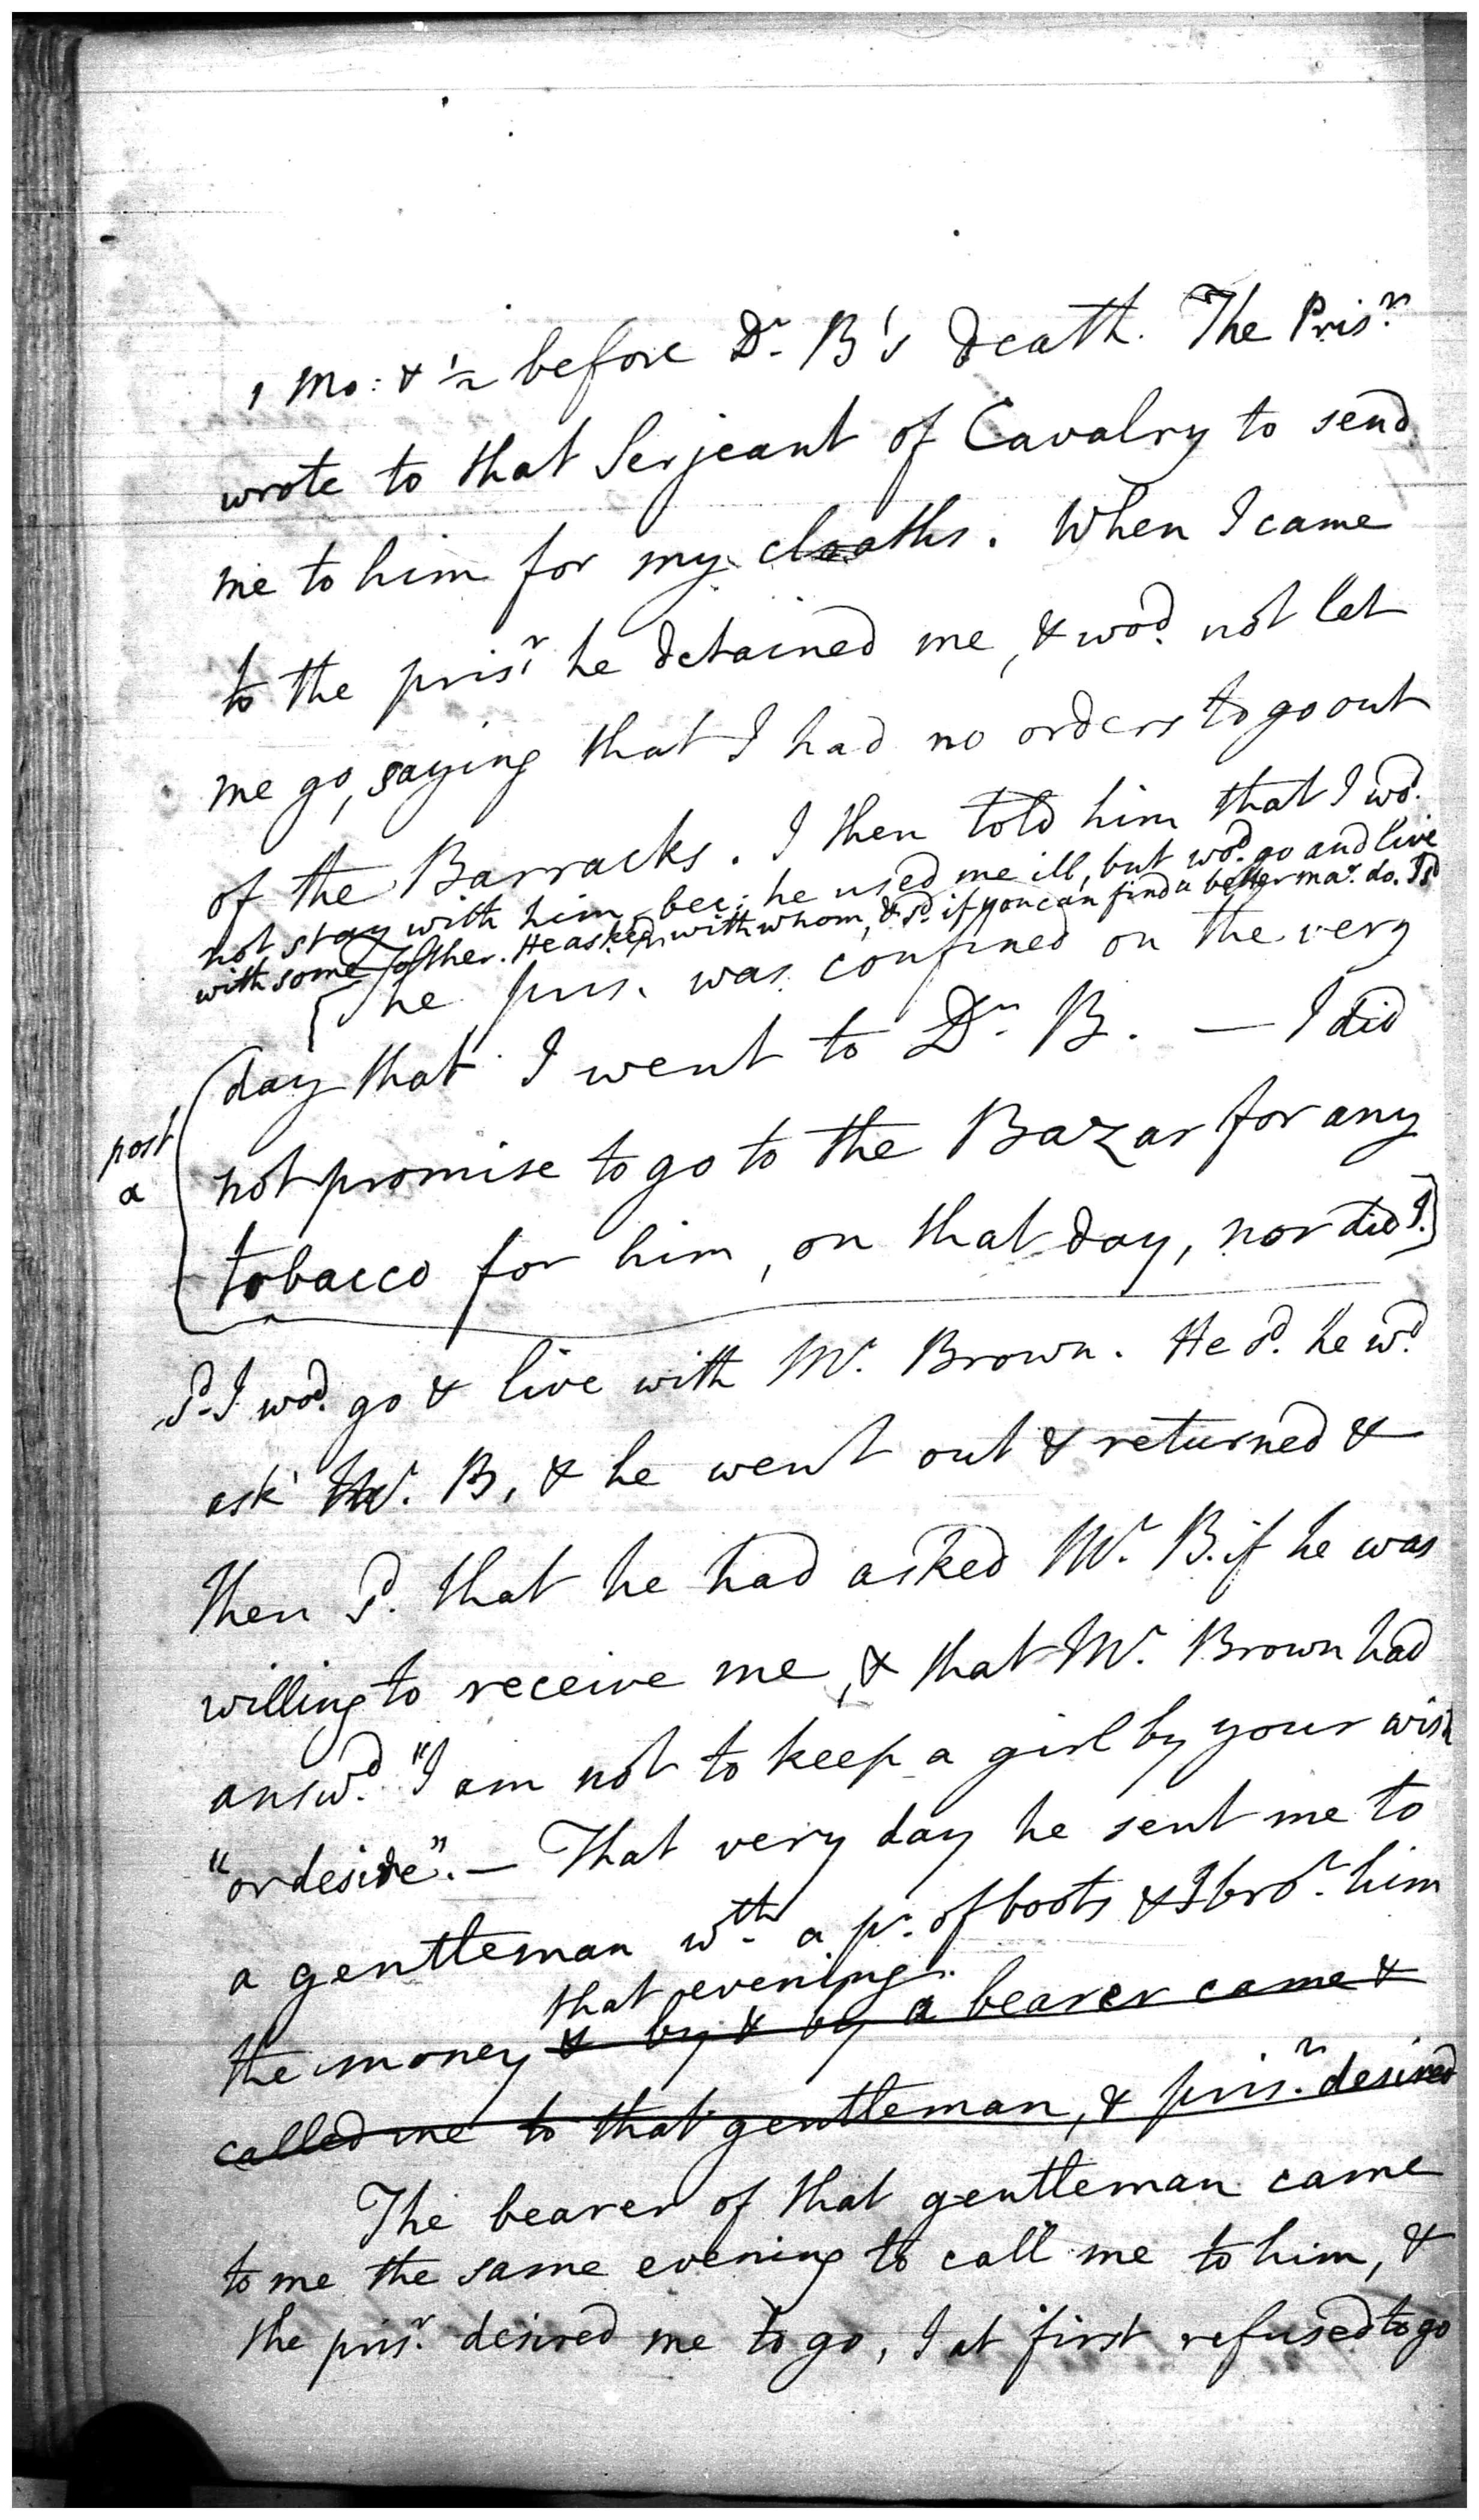 1 Mo: & ½ before Dr. B's death. The Prisr.
wrote to that Serjeant of Cavalry to send
me to him for my cloaths. When I came
to the prisr. he detained me, & wod. not let
me go, saying that I had no orders to go out
of the Barracks. I then told him that I wod.
not stay with him, bec: he used me ill, but wod. go and live
with some other. He asked with whom, & sd. if you can find a better mar. do. I sd
The pris. was confined on the very
day that I went to Dr. B. — I did
post
a
not promise to go to the Bazar for any
tobacco for him, on that day, nor did I.
Sd. I wod. go & live with Mr. Brown. He sd. he wd.
ask Mr. B, & he went out & returned &
then sd. that he had asked Mr. B. if he was
willing to receive me, & that Mr. Brown had
answd. "I am not to keep a girl by your wish
"or desire". — That very day he sent me to
a gentleman wth. a pr. of boots & I brot. him
that evening.
the money & by & by a bearer came &
called me to that gentleman, & prisr. desired
The bearer of that gentleman came
to me the same evening to call me to him, &
the prisr. desired me to go, I at first refused to go